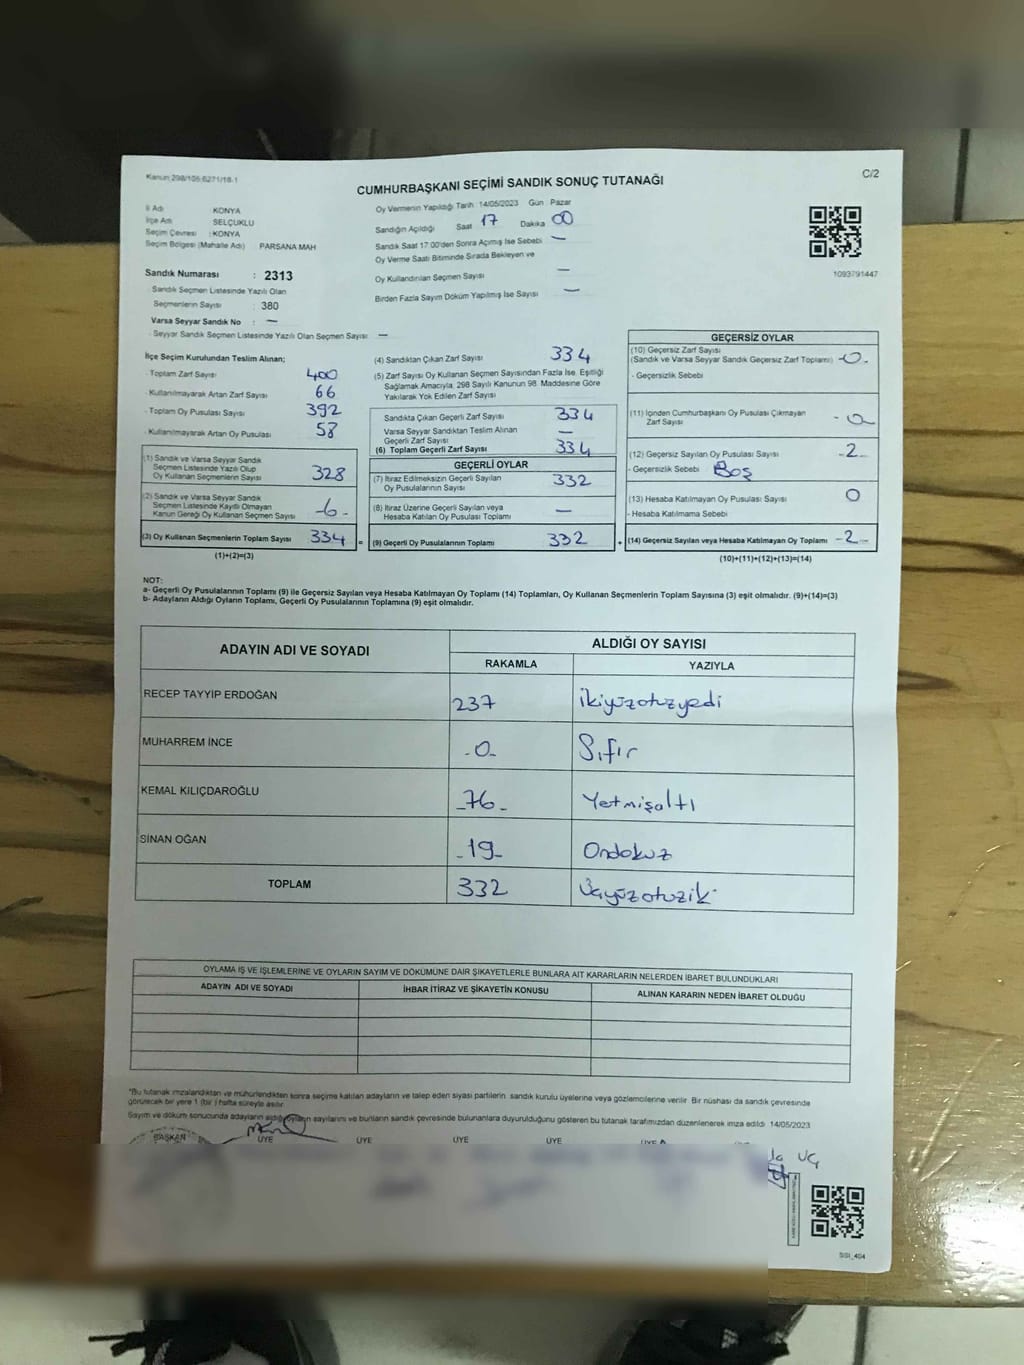 Kanun:298/105-6271/18-1
C/2
CUMHURBAŞKANI SEÇİMİ SANDIK SONUÇ TUTANAĞI
İl Adı KONYA
İlçe Adı SELÇUKLU
Seçim Çevresi : KONYA
Seçim Bölgesi (Mahalle Adı) : PARSANA MAH
Sandık Numarası : 2313
Sandık Seçmen Listesinde Yazılı Olan
Seçmenlerin Sayısı : 380
Varsa Seyyar Sandık No : —
- Seyyar Sandık Seçmen Listesinde Yazılı Olan Seçmen Sayısı : —
Oy Vermenin Yapıldığı Tarih : 14/05/2023 Gün : Pazar
Sandığın Açıldığı Saat 17 Dakika 00
Sandık Saat 17:00'den Sonra Açımış İse Sebebi —
Oy Verme Saati Bitiminde Sırada Bekleyen ve
Oy Kullandırılan Seçmen Sayısı —
Birden Fazla Sayım Döküm Yapılmış İse Sayısı —
1093791447
İlçe Seçim Kurulundan Teslim Alınan;
- Toplam Zarf Sayısı 400
- Kullanılmayarak Artan Zarf Sayısı 66
- Toplam Oy Pusulası Sayısı 392
- Kullanılmayarak Artan Oy Pusulası 58
(1) Sandık ve Varsa Seyyar Sandık
Seçmen Listesinde Yazılı Olup
Oy Kullanan Seçmenlerin Sayısı 328
(2) Sandık ve Varsa Seyyar Sandık
Seçmen Listesinde Kayıtlı Olmayan
Kanun Gereği Oy Kullanan Seçmen Sayısı -6-
(3) Oy Kullanan Seçmenlerin Toplam Sayısı 334 =
(1)+(2)=(3)
(4) Sandıktan Çıkan Zarf Sayısı 334
(5) Zarf Sayısı Oy Kullanan Seçmen Sayısından Fazla İse, Eşitliği
Sağlamak Amacıyla, 298 Sayılı Kanunun 98. Maddesine Göre
Yakılarak Yok Edilen Zarf Sayısı
Sandıkta Çıkan Geçerli Zarf Sayısı 334
Varsa Seyyar Sandıktan Teslim Alınan
Geçerli Zarf Sayısı —
(6) Toplam Geçerli Zarf Sayısı 334
GEÇERLİ OYLAR
(7) İtiraz Edilmeksizin Geçerli Sayılan
Oy Pusulalarının Sayısı 332
(8) İtiraz Üzerine Geçerli Sayılan veya
Hesaba Katılan Oy Pusulası Toplamı —
(9) Geçerli Oy Pusulalarının Toplamı 332 +
GEÇERSİZ OYLAR
(10) Geçersiz Zarf Sayısı
(Sandık ve Varsa Seyyar Sandık Geçersiz Zarf Toplamı) -0-
- Geçersizlik Sebebi
(11) İçinden Cumhurbaşkanı Oy Pusulası Çıkmayan
Zarf Sayısı -0-
(12) Geçersiz Sayılan Oy Pusulası Sayısı -2-
- Geçersizlik Sebebi Boş
(13) Hesaba Katılmayan Oy Pusulası Sayısı 0
- Hesaba Katılmama Sebebi
(14) Geçersiz Sayılan veya Hesaba Katılmayan Oy Toplamı -2-
(10)+(11)+(12)+(13)=(14)
NOT:
a- Geçerli Oy Pusulalarının Toplamı (9) ile Geçersiz Sayılan veya Hesaba Katılmayan Oy Toplamı (14) Toplamları, Oy Kullanan Seçmenlerin Toplam Sayısına (3) eşit olmalıdır. (9)+(14)=(3)
b- Adayların Aldığı Oyların Toplamı, Geçerli Oy Pusulalarının Toplamına (9) eşit olmalıdır.
ADAYIN ADI VE SOYADI ALDIĞI OY SAYISI
RAKAMLA YAZIYLA
RECEP TAYYİP ERDOĞAN 237 ikiyüzotuzyedi
MUHARREM İNCE -0- Sıfır
KEMAL KILIÇDAROĞLU -76- Yetmişaltı
SİNAN OĞAN -19- Ondokuz
TOPLAM 332 Üçyüzotuziki
OYLAMA İŞ VE İŞLEMLERİNE VE OYLARIN SAYIM VE DÖKÜMÜNE DAİR ŞİKAYETLERLE BUNLARA AİT KARARLARIN NELERDEN İBARET BULUNDUKLARI
ADAYIN ADI VE SOYADI İHBAR İTİRAZ VE ŞİKAYETİN KONUSU ALINAN KARARIN NEDEN İBARET OLDUĞU
"Bu tutanak imzalandıktan ve mühürlendikten sonra seçime katılan adayların ve talep eden siyasi partilerin sandık kurulu üyelerine veya gözlemcilerine verilir. Bir nüshası da sandık çevresinde
görülecek bir yere 1 (bir ) hafta süreyle asılır.
Sayım ve döküm sonucunda adayların aldığı oyların sayılarını ve bunların sandık çevresinde bulunanlara duyurulduğunu gösteren bu tutanak tarafımızdan düzenlenerek imza edildi. 14/05/2023
BAŞKAN ÜYE ÜYE ÜYE ÜYE
SSI_404